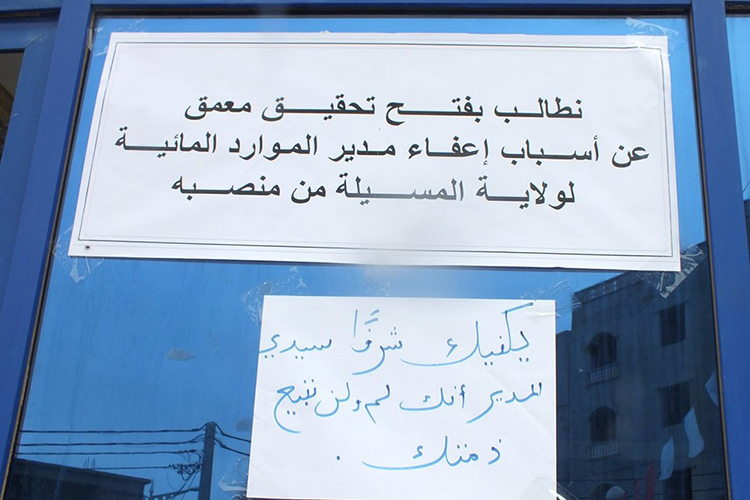 نطالب بفتح تحقيق معمق
عن أسباب إعفاء مدير الموارد المائية
لولاية المسيلة من منصبه
يكفيك شرفًا سيدي
المدير أنك لم ولن تبيع
ذمتك .